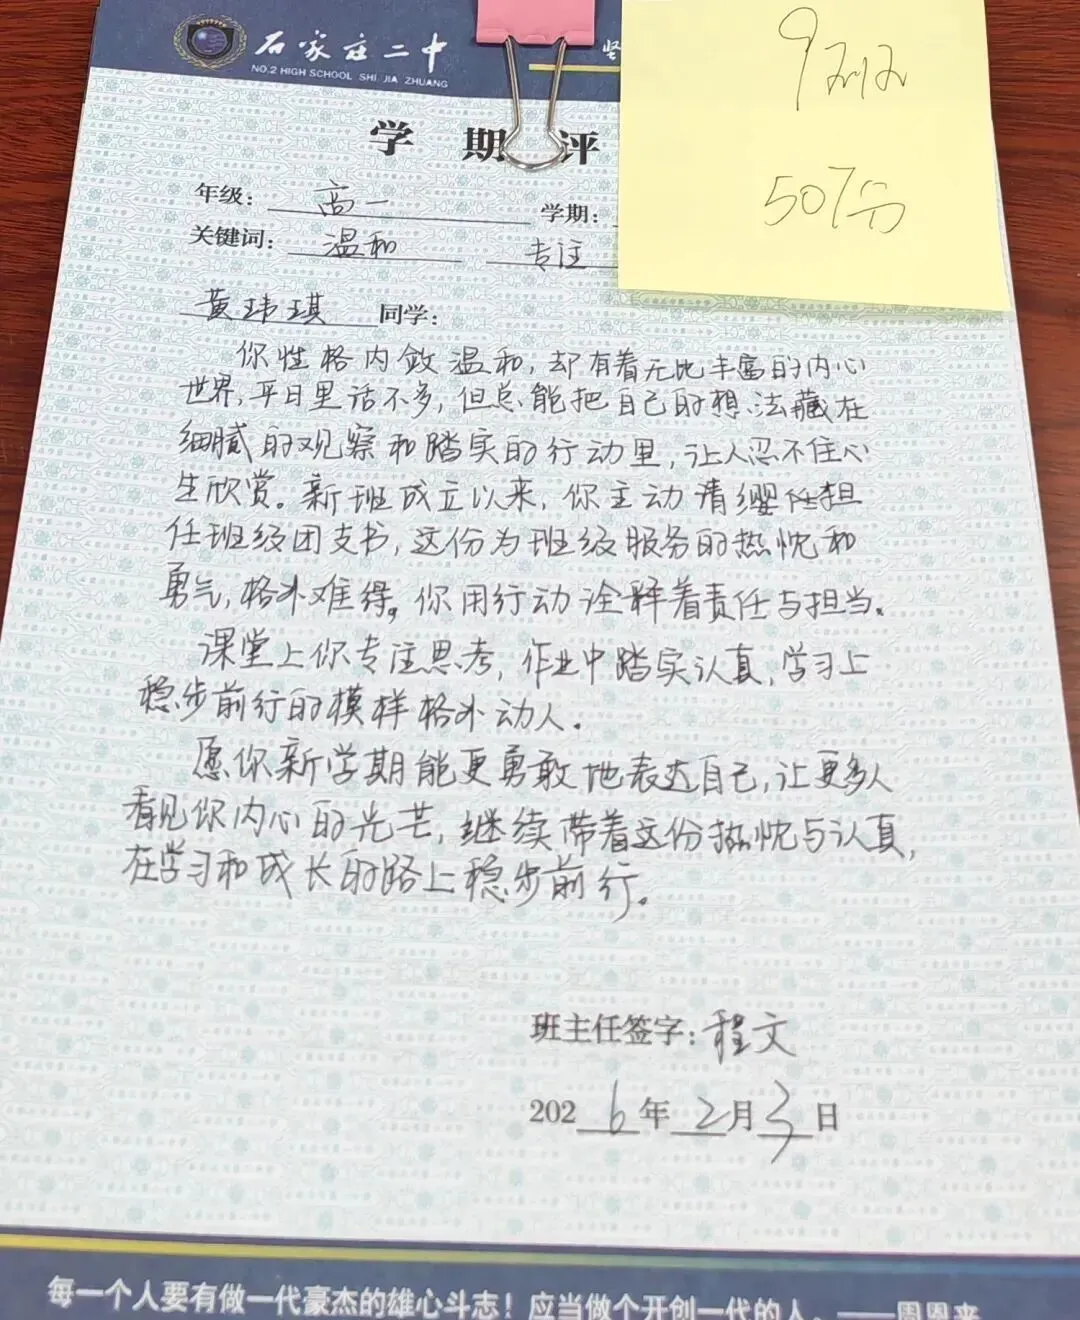 石家庄二中
NO.2 HIGH SCHOOL SHI JIA ZHUANG
坚
学 期 评
年级：高一
学期：
关键词：温和 专注
507分
黄玮琪 同学：
你性格内敛温和，却有着无比丰富的内心
世界，平日里话不多，但总能把自己的想法藏在
细腻的观察和踏实的行动里，让人忍不住心
生欣赏。新班成立以来，你主动请缨任担
任班级团支书，这份为班级服务的热忱和
勇气，格外难得。你用行动诠释着责任与担当。
课堂上你专注思考，作业中踏实认真，学习上
稳步前行的模样格外动人。
愿你新学期能更勇敢地表达自己，让更多人
看见你内心的光芒，继续带着这份热忱与认真，
在学习和成长的路上稳步前行。
班主任签字：程文
2026年2月3日
每一个人要有做一代豪杰的雄心斗志！应当做个开创一代的人。——周恩来